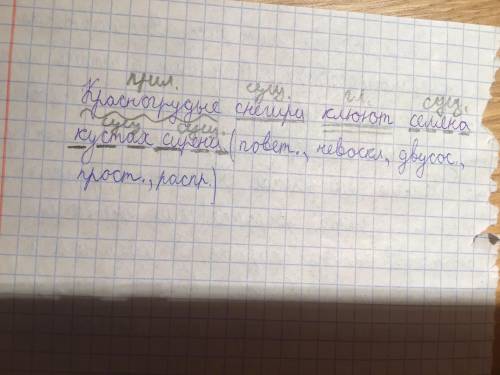 прил. сущ. гл. сущ.
Красногрудые снегири клюют семена
сущ. сущ.
кустах сирени (повет., невоскл, двусос.,
прост., распр.)